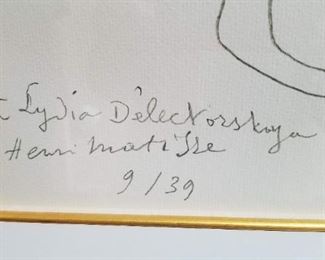 Lydia Délectorskaya
Henri Matisse
9/39